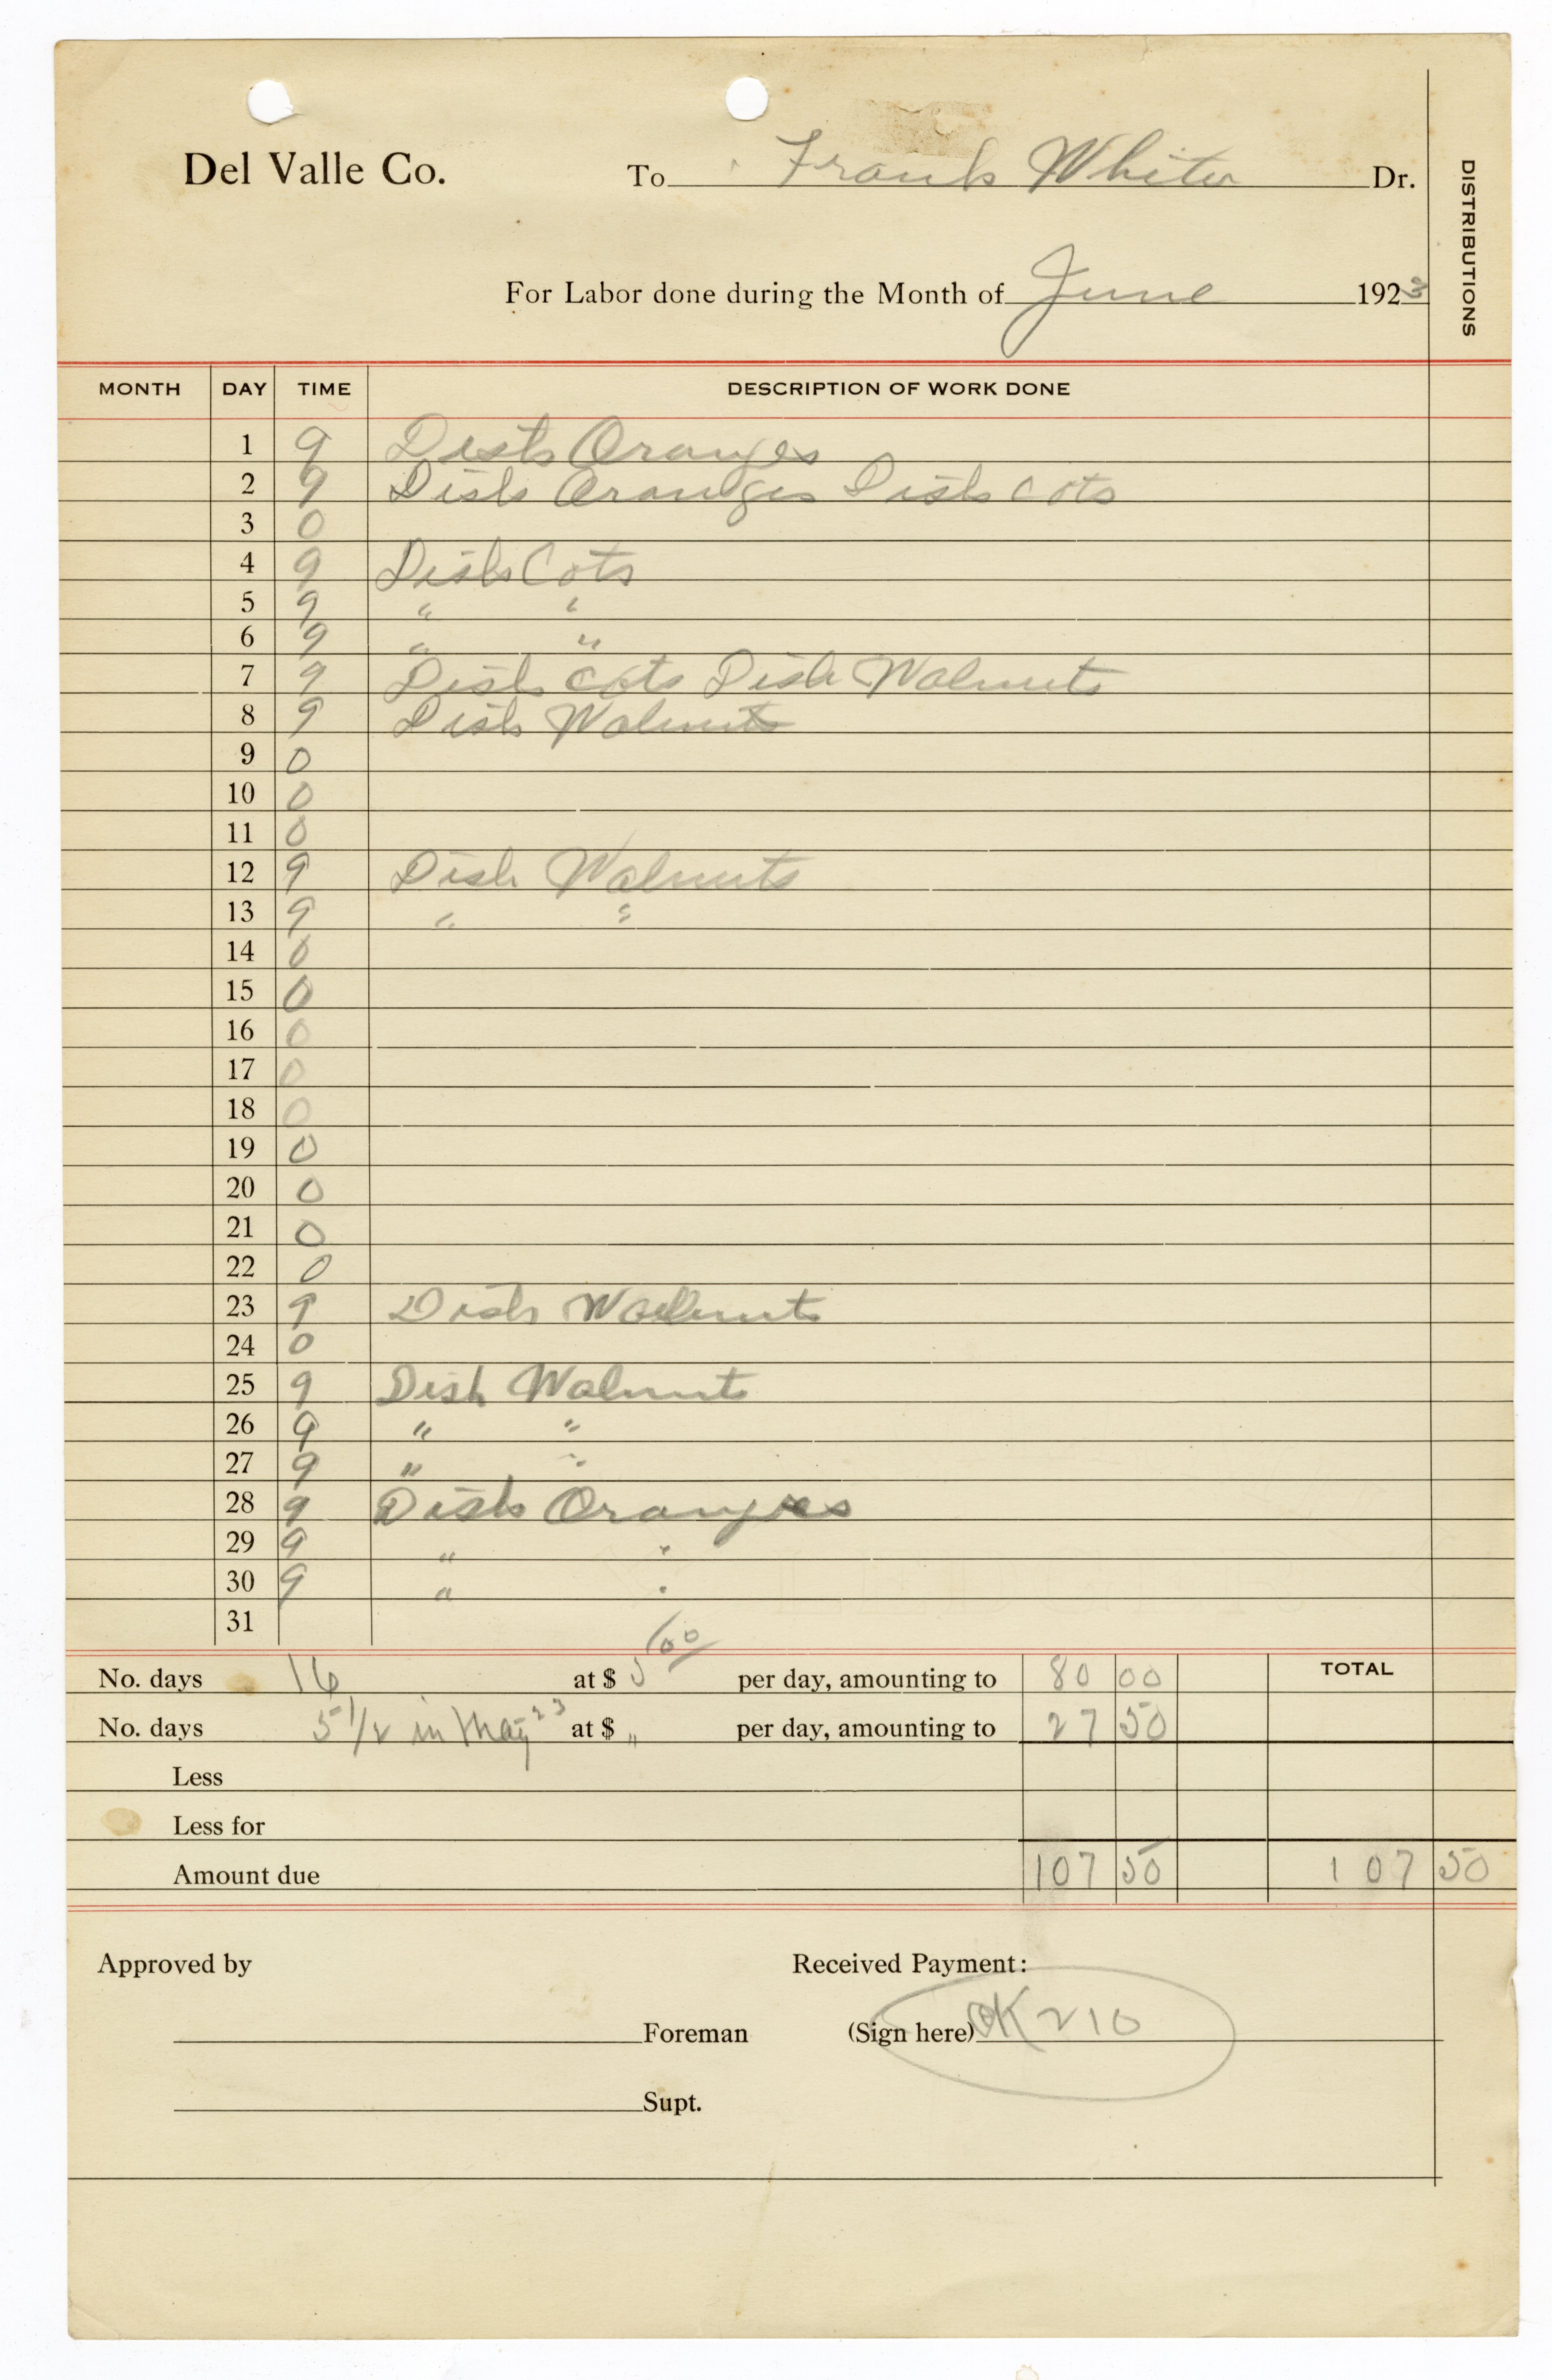 Del Valle Co. To Frank White Dr.
For Labor done during the Month of June 1923
DISTRIBUTIONS
MONTH DAY TIME DESCRIPTION OF WORK DONE
1 9 Disk Oranges
2 9 Disk Oranges Disk cots
3 0
4 9 Disk Cots
5 9 " "
6 9 " "
7 9 Disk cots Disk Walnuts
8 9 Disk Walnuts
9 0
10 0
11 0
12 9 Disk Walnuts
13 9 " "
14 0
15 0
16 0
17 0
18 0
19 0
20 0
21 0
22 0
23 9 Disk Walnuts
24 0
25 9 Disk Walnuts
26 9 " "
27 9 " "
28 9 Disk Oranges
29 9 " "
30 9 " "
31
No. days 16 at $ 5 00 per day, amounting to 80 00 TOTAL
No. days 5 1/2 in May 23 at $ " per day, amounting to 27 50
Less
Less for
Amount due 107 50 107 50
Approved by Received Payment:
Foreman (Sign here) OK 210
Supt.